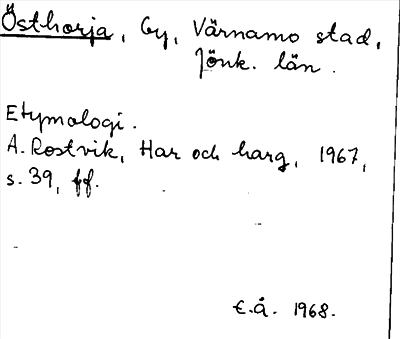 Östhorja, Gy, Värnamo stad,
Jönk. län.
Etymologi.
A. Rostvik, Har och harg, 1967,
s. 39, ff.
E.Å. 1968.